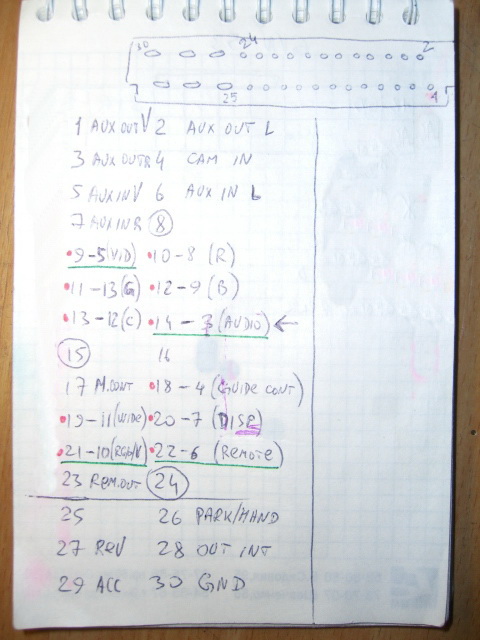 30 24 2
25 1
1 AUX OUT V 2 AUX OUT L
3 AUX OUT R 4 CAM IN
5 AUX IN V 6 AUX IN L
7 AUX IN R 8
9-5(VID) 10-8 (R)
11-13(G) 12-9 (B)
13-12(C) 14-3 (AUDIO) ←
15 16
17 M.CONT 18-4 (GUIDE CONT)
19-11(WIDE) 20-7 (DISP)
21-10(RGB/V) 22-6 (REMOTE)
23 REM.OUT 24
25 26 PARK/HAND
27 REV 28 OUT INT
29 ACC 30 GND